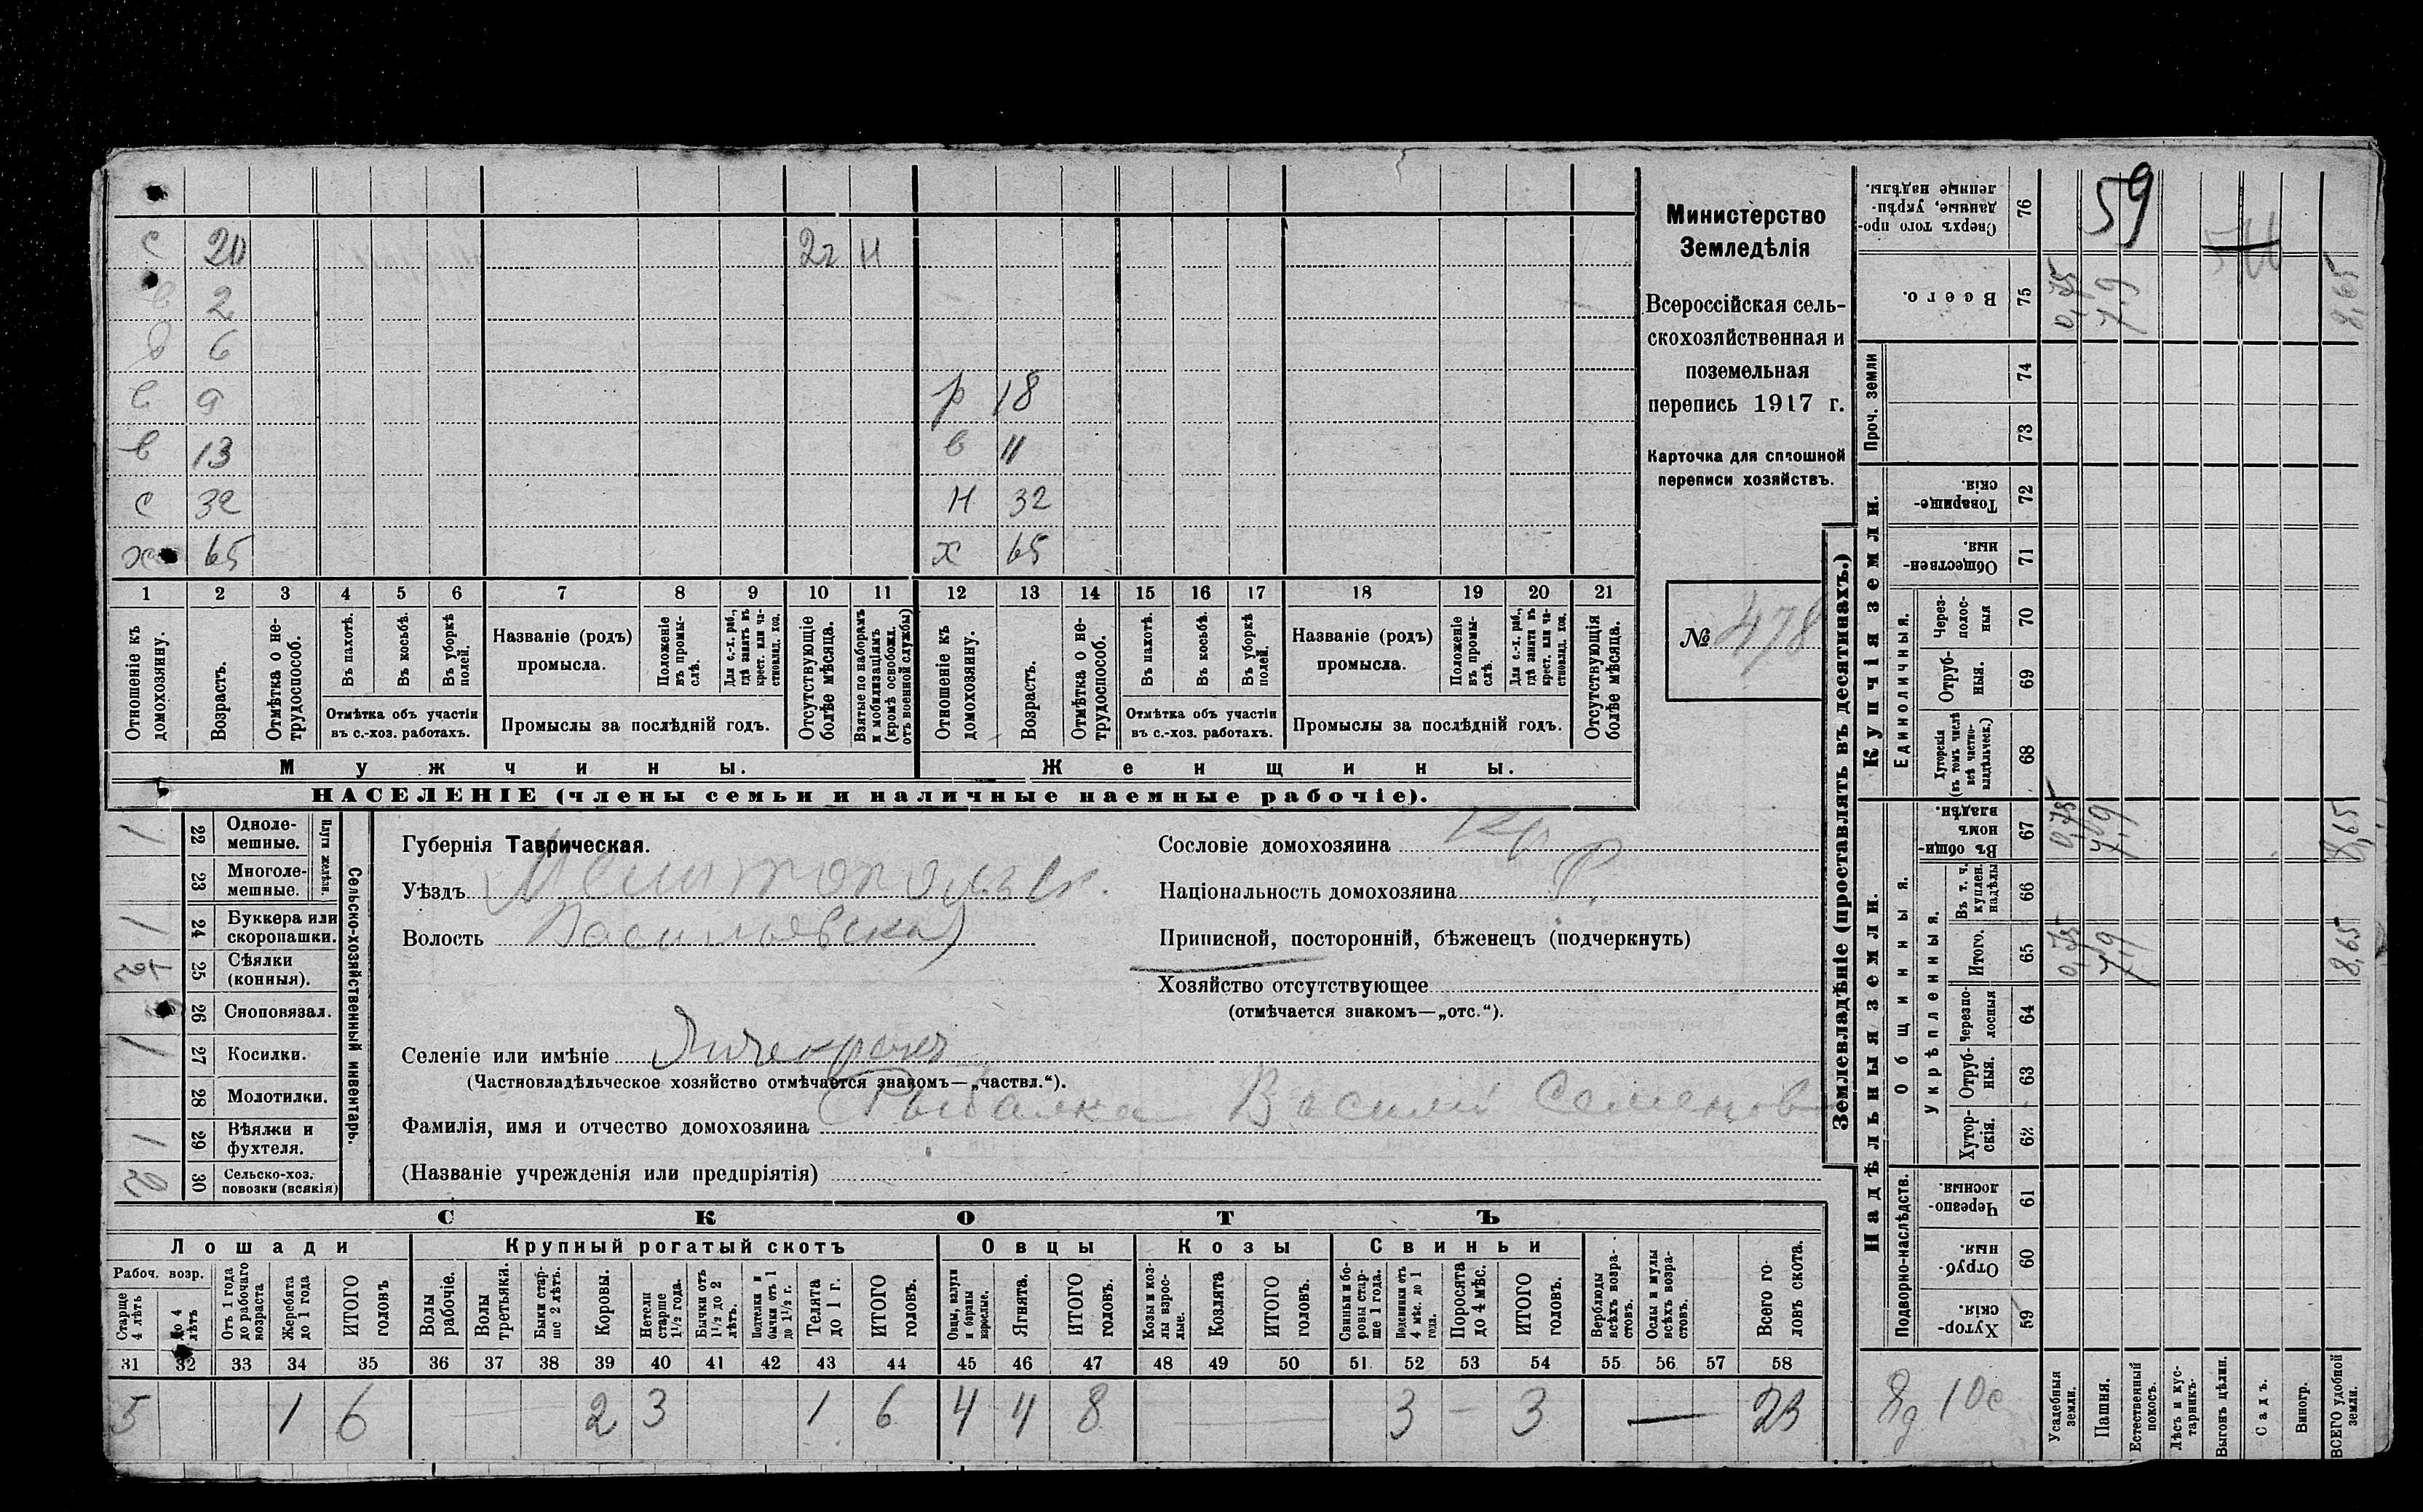 с 20 22 н
в 2
в 6
в 9 р 18
в 13 в 11
с 32 н 32
х 65 х 65
1 2 3 4 5 6 7 8 9 10 11 12 13 14 15 16 17 18 19 20 21
Отношеніе къ домохозяину.
Возрастъ.
Отмѣтка о не-трудоспособ.
Въ пахотѣ.
Въ косьбѣ.
Въ уборкѣ полей.
Отмѣтка объ участіи въ с.-хоз. работахъ.
Названіе (родъ) промысла.
Положеніе въ промы-слѣ.
Для с.-х. раб., гдѣ занятъ въ крест. или ча-стновлад. хоз.
Промыслы за послѣдній годъ.
Отсутствующіе болѣе мѣсяца.
Взятые по наборамъ и мобилизаціямъ (кромѣ освобожд. отъ военной службы)
Отношеніе къ домохозяину.
Возрастъ.
Отмѣтка о не-трудоспособ.
Въ пахотѣ.
Въ косьбѣ.
Въ уборкѣ полей.
Отмѣтка объ участіи въ с.-хоз. работахъ.
Названіе (родъ) промысла.
Положеніе въ промы-слѣ.
Для с.-х. раб., гдѣ занята въ крест. или ча-стновлад. хоз.
Промыслы за послѣдній годъ.
Отсутствующія болѣе мѣсяца.
Мужчины.
Женщины.
НАСЕЛЕНІЕ (члены семьи и наличные наемные рабочіе).
Министерство
Земледѣлія
Всероссійская сель-
скохозяйственная и
поземельная
перепись 1917 г.
Карточка для сплошной
переписи хозяйствъ.
№ 478
Сельско-хозяйственный инвентарь.
Плуги желѣзн.
1 22 Одноле-мешные.
23 Многоле-мешные.
1 24 Буккера или скоропашки.
25 Сѣялки (конныя).
26 Сноповязал.
1 27 Косилки.
28 Молотилки.
1 29 Вѣялки и фухтеля.
2 30 Сельско-хоз. повозки (всякія)
Губернія Таврическая.
Уѣздъ Мелитопольск.
Волость Васильевска
Селеніе или имѣніе Янчекракъ
(Частновладѣльческое хозяйство отмѣчается знакомъ—„частвл.“).
Фамилія, имя и отчество домохозяина Рыбалка Василій Семенов
(Названіе учрежденія или предпріятія)
Сословіе домохозяина Кр
Національность домохозяина Р.
Приписной, посторонній, бѣженецъ (подчеркнуть)
Хозяйство отсутствующее
(отмѣчается знакомъ—„отс.“).
СКОТЪ
Лошади
Крупный рогатый скотъ
Овцы
Козы
Свиньи
Рабоч. возр.
Старше 4 лѣтъ
До 4 лѣтъ
Отъ 1 года до рабочаго возраста
Жеребята до 1 года
ИТОГО головъ
Волы рабочіе.
Волы третьяки.
Быки стар-ше 2 лѣтъ.
Коровы.
Нетели старше 1½ года.
Бычки отъ 1½ до 2 лѣтъ.
Подтелки и бычки отъ 1 до 1½ г.
Телята до 1 г.
ИТОГО головъ.
Овцы, валухи и бараны взрослые.
Ягнята.
ИТОГО головъ.
Козы и коз-лы взрос-лые.
Козлята
ИТОГО головъ.
Свиньи и бо-ровы стар-ше 1 года.
Подсвинки отъ 4 мѣс. до 1 года.
Поросята до 4 мѣс.
ИТОГО головъ.
Верблюды всѣхъ возра-стовъ.
Ослы и мулы всѣхъ возра-стовъ.
Всего го-ловъ скота.
31 32 33 34 35 36 37 38 39 40 41 42 43 44 45 46 47 48 49 50 51 52 53 54 55 56 57 58
5 1 6 2 3 1 6 4 4 8 3 — 3 — 23
Землевладѣніе (проставлять въ десятинахъ.)
Надѣльныя земли.
Купчія земли.
Проч. земли
Подворно-наслѣдств.
Общинныя.
Укрѣпленныя.
Единоличныя.
76 Сверхъ того про-данные, укрѣп-ленные надѣлы.
59
75 Всего.
0,75 7,9 8,65
74
73
72 Товарище-скія.
71 Обществен-ныя.
70 Через-полос-ныя
69 Отруб-ныя.
68 Хуторскія (въ томъ числѣ всѣ частно-владѣльческ.)
67 Въ общи-номъ владѣн.
0,75 7,9 8,65
66 Въ т. ч. куплен. надѣлы
65 Итого.
0,75 7,9 8,65
64 Черезпо-лосныя
63 Отруб-ныя.
62 Хутор-скія.
61 Черезпо-лосныя.
60 Отруб-ныя.
59 Хутор-скія.
Усадебныя земли.
Пашня.
Естественный покосъ.
Лѣсъ и кус-тарникъ.
Выгонъ цѣлин.
Садъ.
Виногр.
ВСЕГО удобной земли.